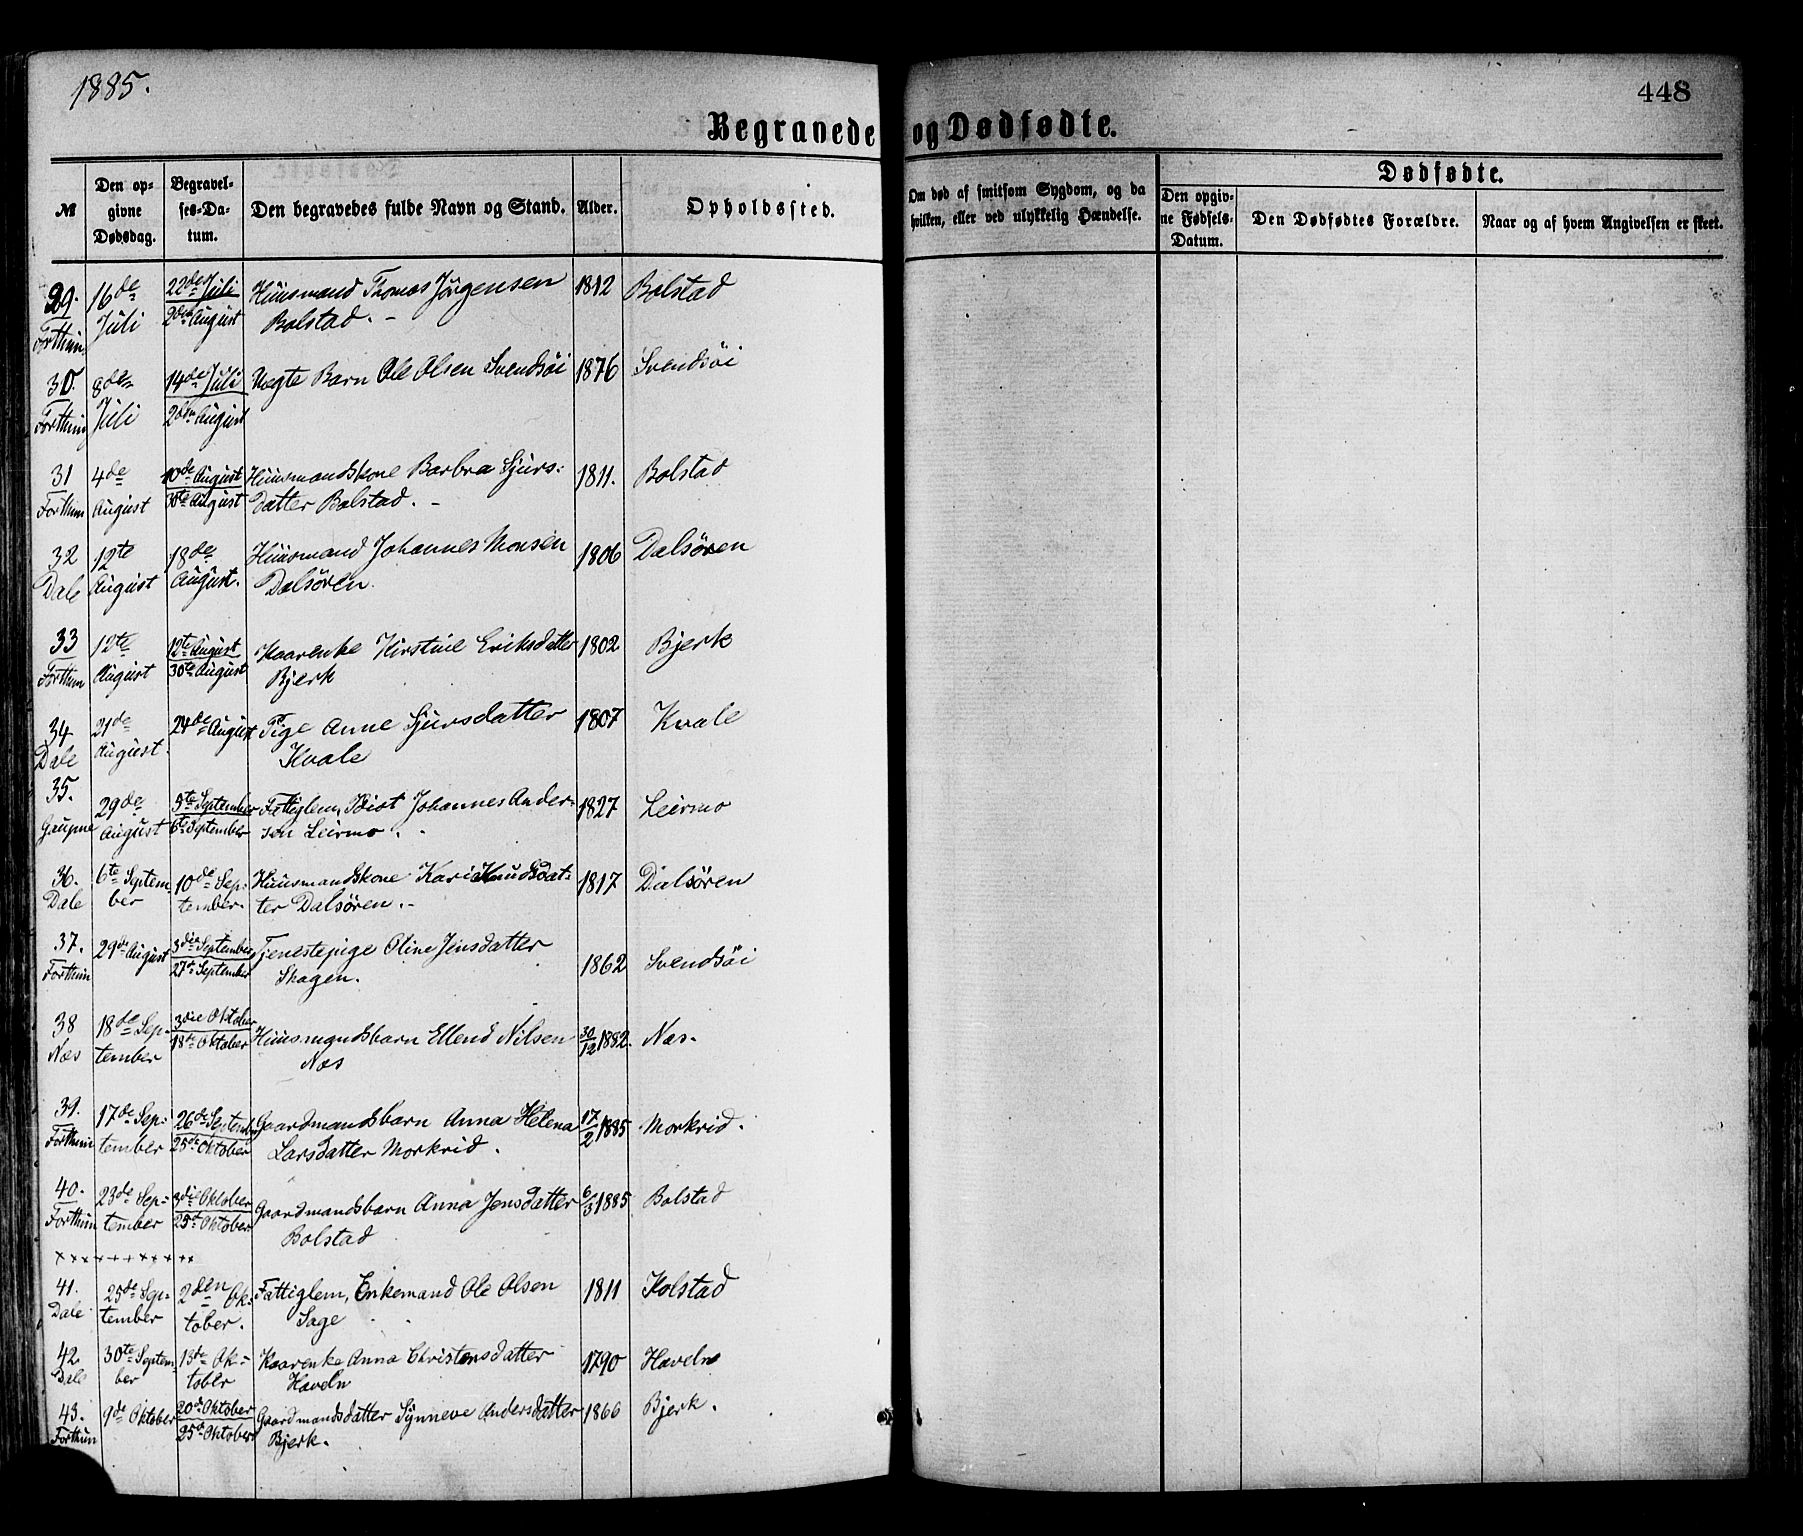 1885.
448
Begravede og Dødfødte.
№
Den opgivne Dødsdag.
Begravelses-Datum.
Den begravedes fulde Navn og Stand.
Alder.
Opholdssted.
Om død af smitsom Sygdom, og da hvilken, eller ved ulykkelig Hændelse.
Dødfødte.
Den opgivne Fødsels-Datum.
Den Dødfødtes Forældre.
Naar og af hvem Angivelsen er skeet.
29. 16de 22de Juli Huusmand Thomas Jörgensen 1812 Bolstad
Forthun Juli 2den August Bolstad. -
30. 8de 14de Juli Ægte Barn Ole Olsen Svendsöi 1876 Svendsöi
Forthun Juli 2den August
31 4de 10de August Huusmandskone Barbra Sjurs: 1811. Bolstad
Forthun August 30te August datter Bolstad. -
32 12te 18de Huusmand Johannes Monsen 1806 Dalsören
Dale August August. Dalsören.
33 12te 12te August Kaarenke Kirstine Eriksdatter 1802 Bjerk
Forthun August 30te August Bjerk
34 21de 24de August Pige Anne Sjursdatter 1807 Kvale
Dale August. Kvale
35. 29de 5te September Fattiglem, Idiot Johannes Ander- 1827 Leirmo
Gaupne August 6te September sen Leirmo.
36. 6te Septem- 10de Sep- Huusmandskone Kari Knudsdat- 1817 Dalsören
Dale ber tember. ter Dalsören. -
37. 29de August 3die September Tjenestepige Oline Jensdatter 1862 Svendsöi
Forthun 27de September Skagen.
38 18de Sep- 3die Oktober Huusmandsbarn Ellend Nilsen 30/12 1882. Næs.
Næs tember 18de Oktober Næs
39. 17de Sep- 26de September Gaardmandsbarn Anna Helena 17/2 1885 Morkrid.
Forthun tember 25de Oktober Larsdatter Morkrid.
40. 23de Sep- 3die Oktober Gaardmandsbarn Anna Jensdatter 6/3 1885 Bolstad
Forthun tember 25de Oktober Bolstad
× × × × × × × × × × ×
41. 25de Sep- 2den Ok- Fattiglem, Enkemand Ole Olsen 1811 Kolstad
Dale tember tober. Sage
42 30te Septem- 13de Ok- Kaarenke Anna Christensdatter 1790 Haveln
Dale ber tober Haveln
43. 9de Oktober 20de Oktober Gaardmandsdatter Synneve Andersdatter 1866 Bjerk.
Forthun 25de Oktober Bjerk.